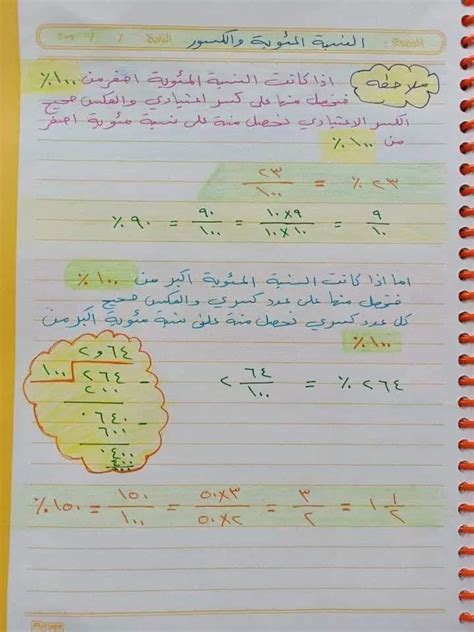 الموضوع : النسبة المئوية والكسور التاريخ / / ٢٠٠
ملاحظة
اذا كانت النسبة المئوية اصغر من ١٠٠٪
فنحصل منها على كسر اعتيادي والعكس صحيح
الكسر الاعتيادي نحصل منه على نسبة مئوية اصغر
من ١٠٠٪
٢٣٪ = ٢٣/١٠٠
٩/١٠ = ٩×١٠/١٠×١٠ = ٩٠/١٠٠ = ٩٠٪
اما اذا كانت النسبة المئوية اكبر من ١٠٠٪
فنحصل منها على عدد كسري والعكس صحيح
كل عدد كسري نحصل منه على نسبة مئوية اكبر من
١٠٠٪
٢٦٤٪ = ٢ ٦٤/١٠٠
٢و٦٤
١٠٠ ٢٦٤ -
٢٠٠
٠٦٤٠ -
٦٠٠
٠٤٠٠
٤٠٠
١ ١/٢ = ٣/٢ = ٣×٥٠/٢×٥٠ = ١٥٠/١٠٠ = ١٥٠٪